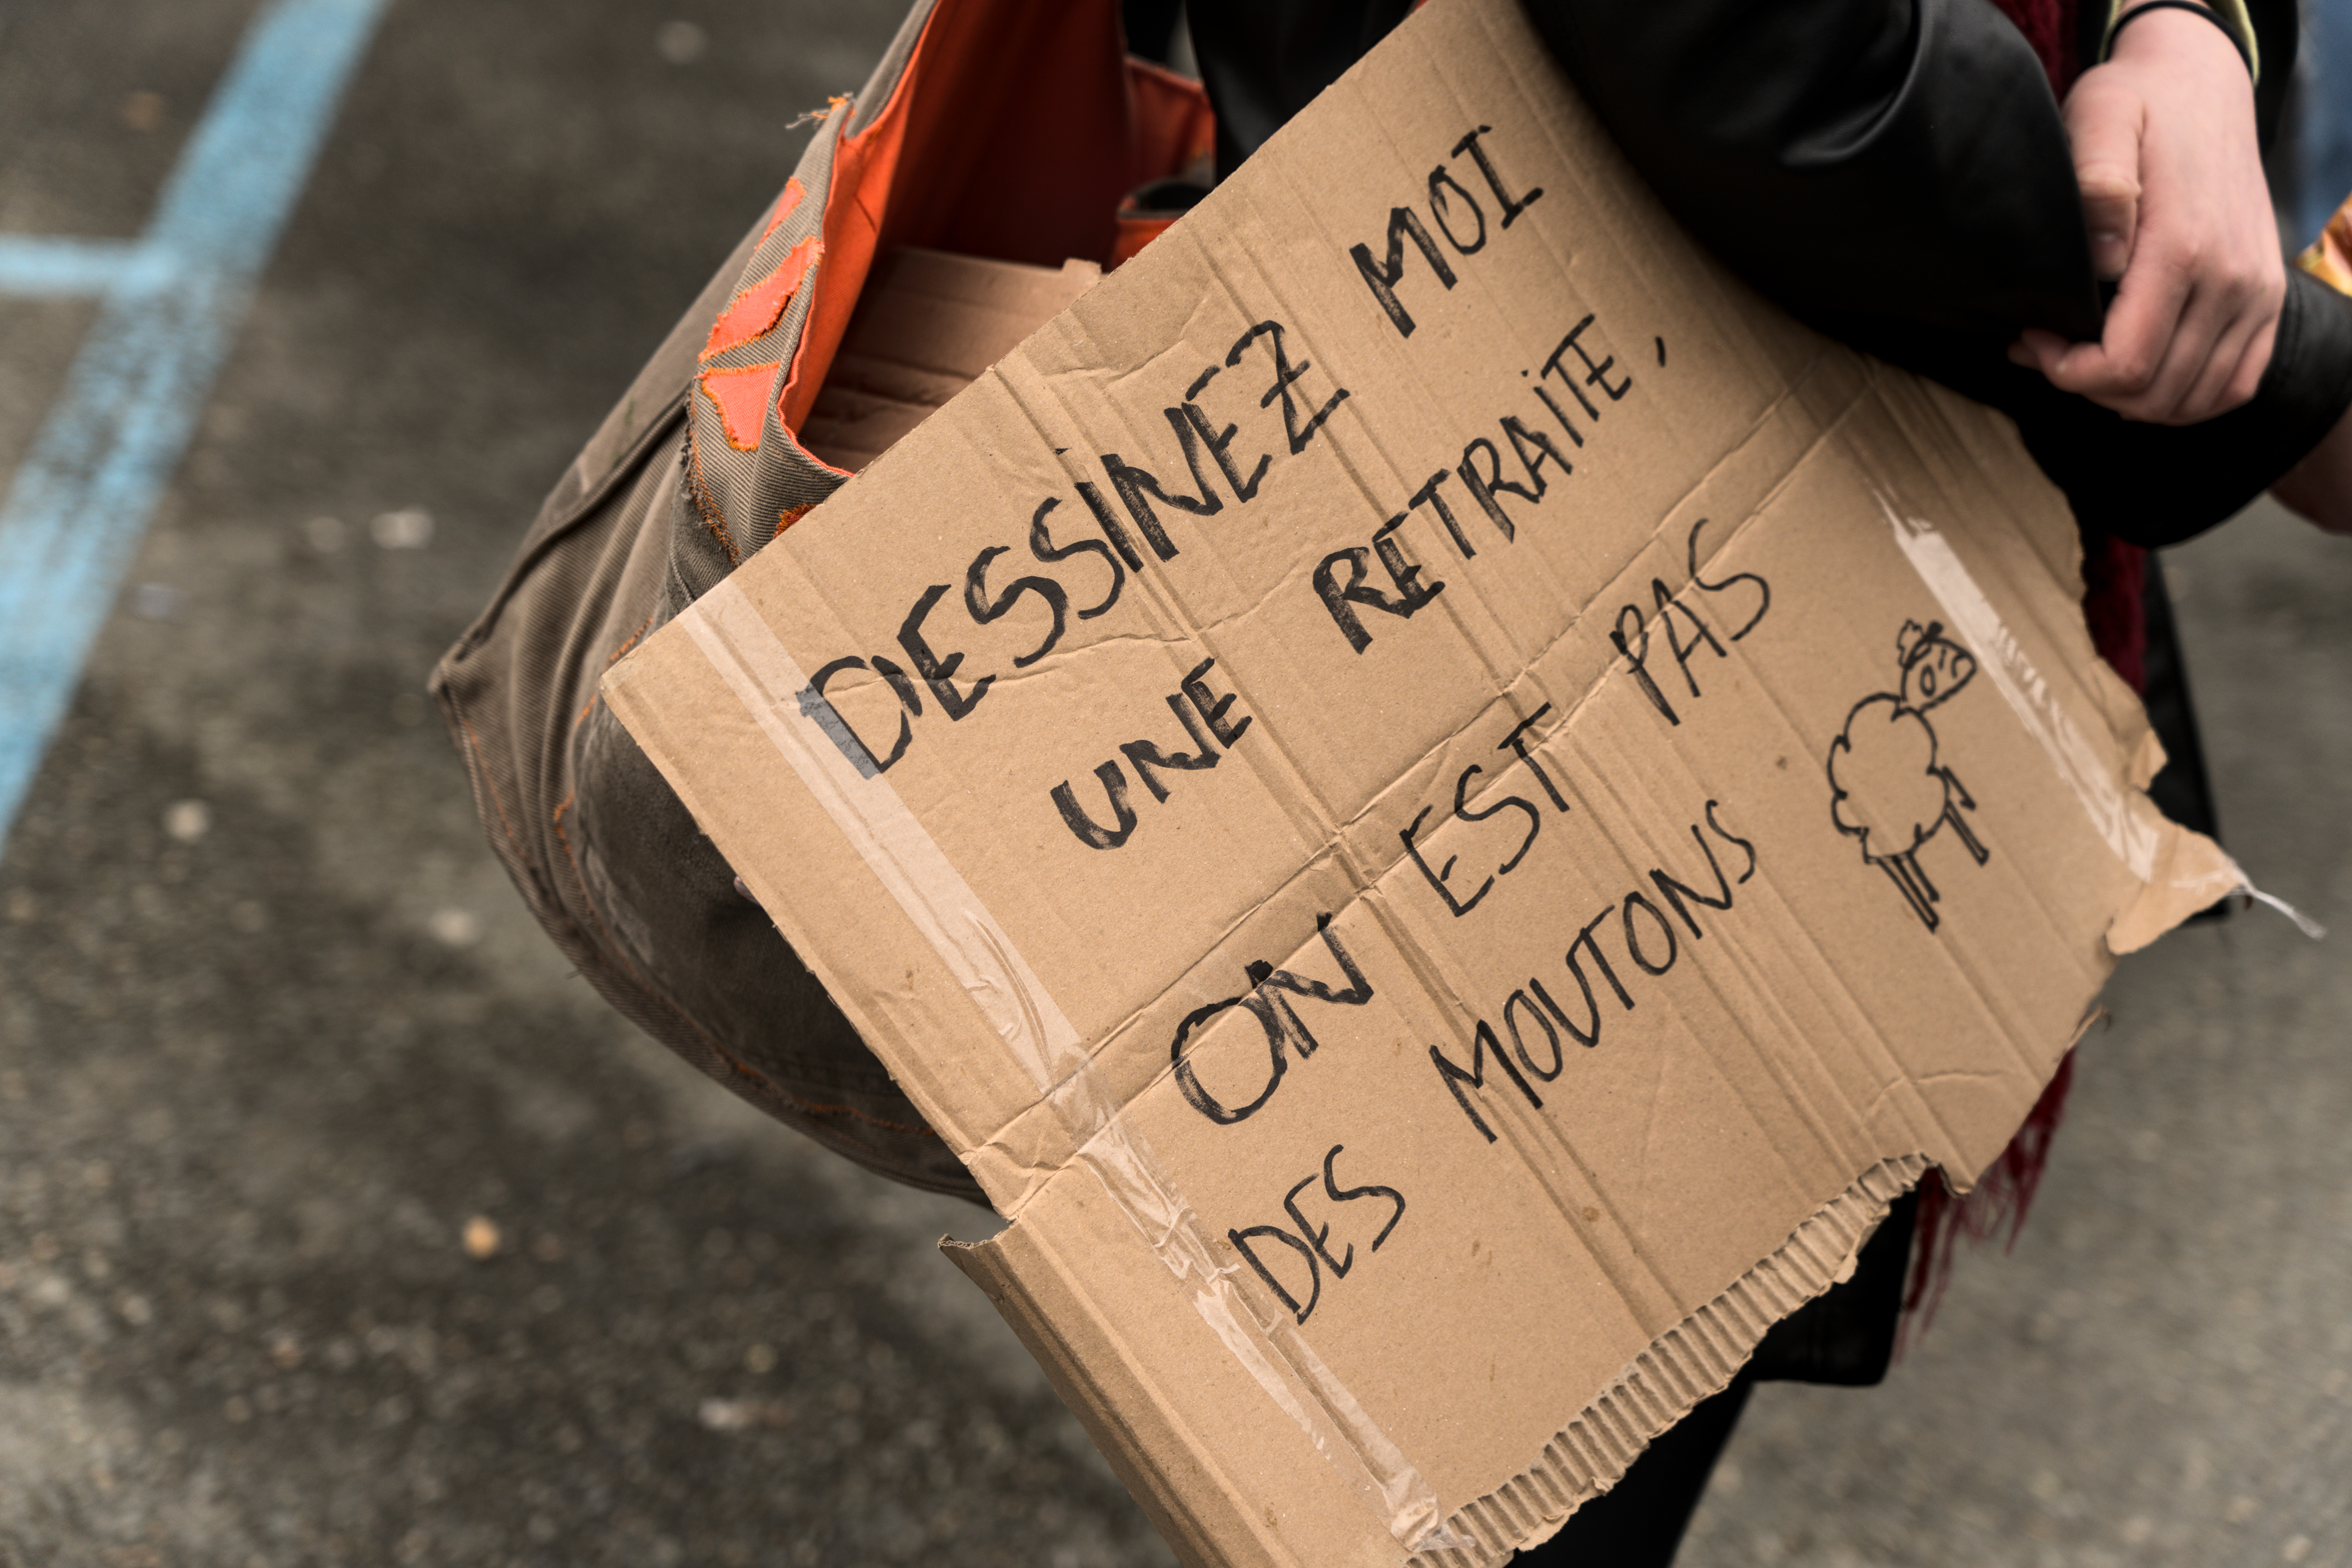 DESSINEZ MOI
UNE RETRAITE,
ON EST PAS
DES MOUTONS